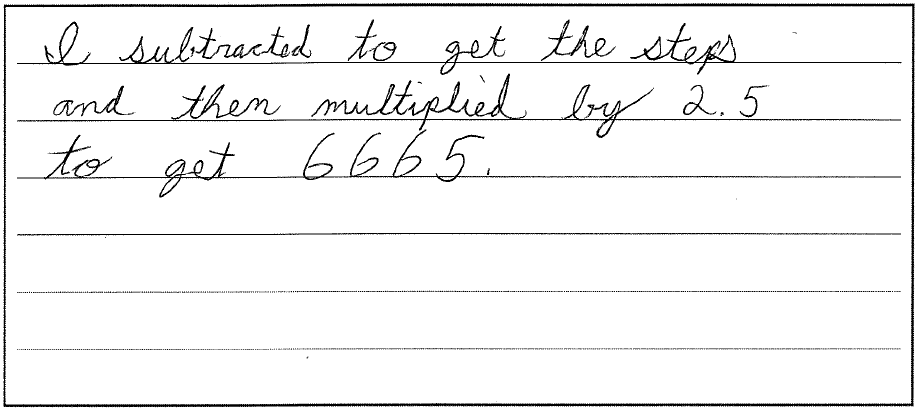 I subtracted to get the steps
and then multiplied by 2.5
to get 6665.